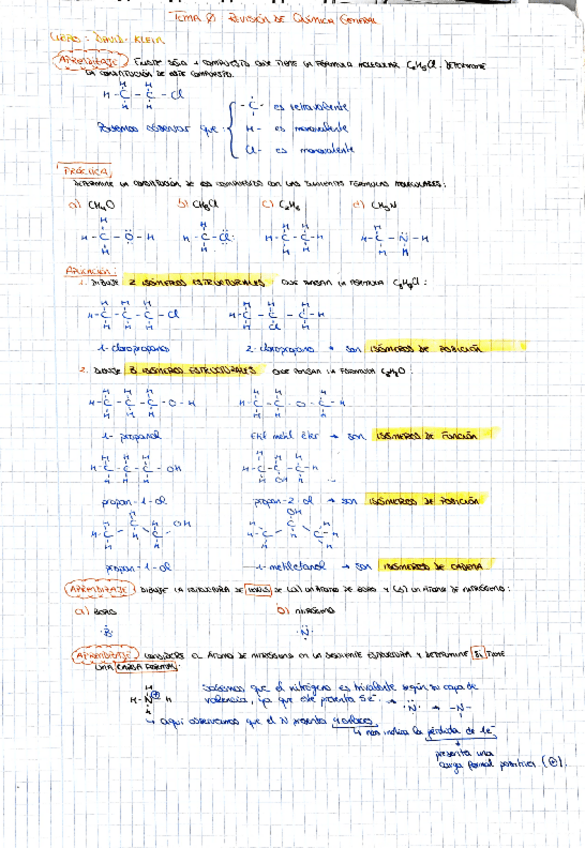 TEMA 0: REVISIÓN DE QUÍMICA GENERAL
LIBRO: DAVID KLEIN
APRENDIZAJE EXISTE SÓLO 1 COMPUESTO QUE TIENE LA FÓRMULA MOLECULAR C₂H₅Cl. DETERMINE
LA CONSTITUCIÓN DE ESTE COMPUESTO.
H H
H-C-C-Cl
H H
Podemos observar que:
-C- es tetravalente
H- es monovalente
Cl- es monovalente
PRÁCTICA
DETERMINE LA CONSTITUCIÓN DE LOS COMPUESTOS CON LAS SIGUIENTES FÓRMULAS MOLECULARES:
a) CH₄O b) CH₃Cl c) C₂H₆ d) CH₅N
H H H H H
H-C-O-H H-C-Cl: H-C-C-H H-C-N-H
H H H H H H
APLICACIÓN:
1. DIBUJE 2 ISÓMEROS ESTRUCTURALES QUE TENGAN LA FÓRMULA C₃H₇Cl:
H H H H H H
H-C-C-C-Cl H-C-C-C-H
H H H H Cl H
1-cloropropano 2-cloropropano → son ISÓMEROS DE POSICIÓN
2. DIBUJE 3 ISÓMEROS ESTRUCTURALES QUE TENGAN LA FÓRMULA C₃H₈O:
H H H H H H
H-C-C-C-O-H H-C-C-O-C-H
H H H H H H
1-propanol Etil metil éter → son ISÓMEROS DE FUNCIÓN
H H H H H H
H-C-C-C-OH H-C-C-C-H
H H H H OH H
propan-1-ol propan-2-ol → son ISÓMEROS DE POSICIÓN
propan-1-ol 1-metiletanol → son ISÓMEROS DE CADENA
APRENDIZAJE DIBUJE LA ESTRUCTURA DE LEWIS DE (a) UN ÁTOMO DE BORO Y (b) UN ÁTOMO DE NITRÓGENO:
a) BORO b) NITRÓGENO
B N
APRENDIZAJE CONSIDERE EL ÁTOMO DE NITRÓGENO EN LA SIGUIENTE ESTRUCTURA Y DETERMINE SI TIENE
UNA CARGA FORMAL:
H
H-N⊕-H
H
Sabemos que el nitrógeno es trivalente según su capa de
valencia, ya que ésta presenta 5e⁻ → N → -N-
↳ aquí observamos que el N presenta 4 enlaces
↳ nos indica la pérdida de 1e⁻
presenta una
carga formal positiva (⊕).